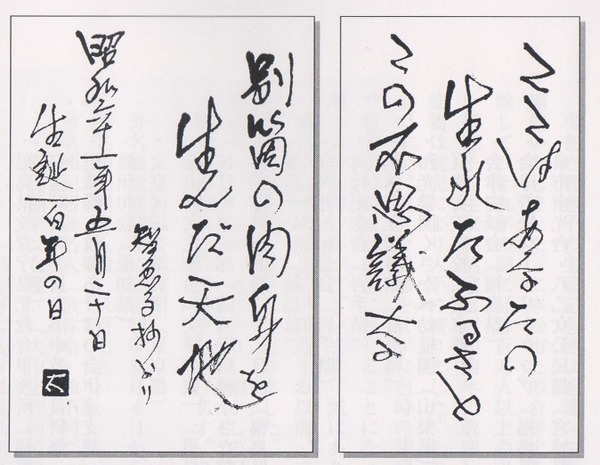 ここはあなたの
生れたふるさと
この不思議な
別箇の肉身を
生んだ天地
智恵子抄より
昭和六十一年五月二十日
生誕百年の日